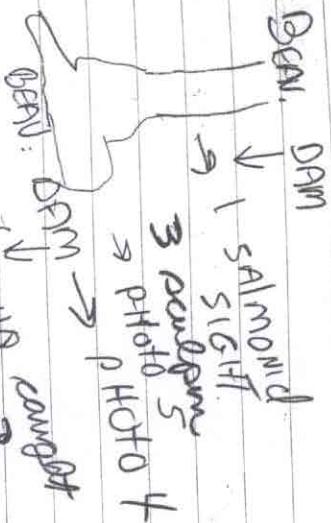 BEAV. DAM
↓
1 SALMONID
→ SIGHT
3 sculpin
→ PHOTO 5
BEAV: DAM → PHOTO 4
↓
caught
→